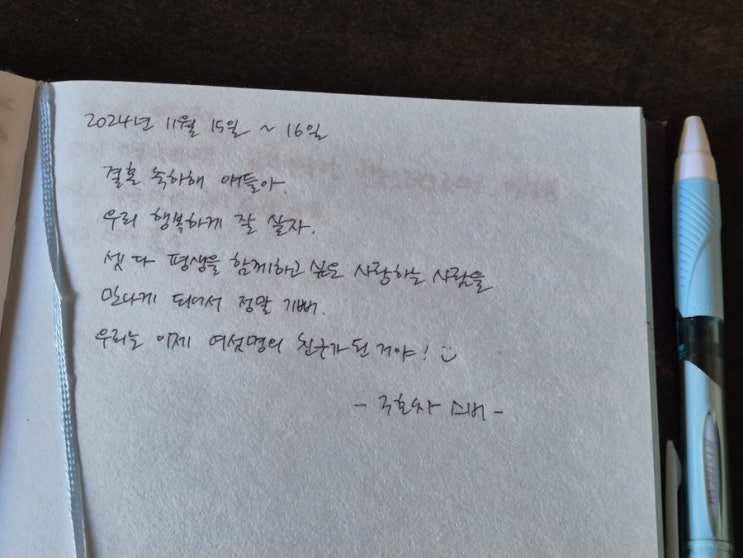 2024년 11월 15일 ~ 16일
결혼 축하해 얘들아.
우리 행복하게 잘 살자.
셋 다 평생을 함께하고 싶은 사랑하는 사람을
만나게 되어서 정말 기뻐.
우리는 이제 여섯명의 친구가 된 거야!